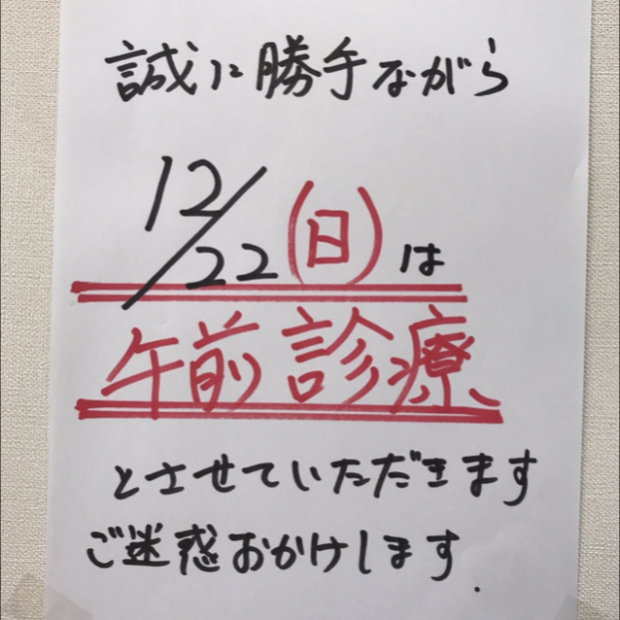 誠に勝手ながら
12/22(日)は
午前診療
とさせていただきます
ご迷惑おかけします.